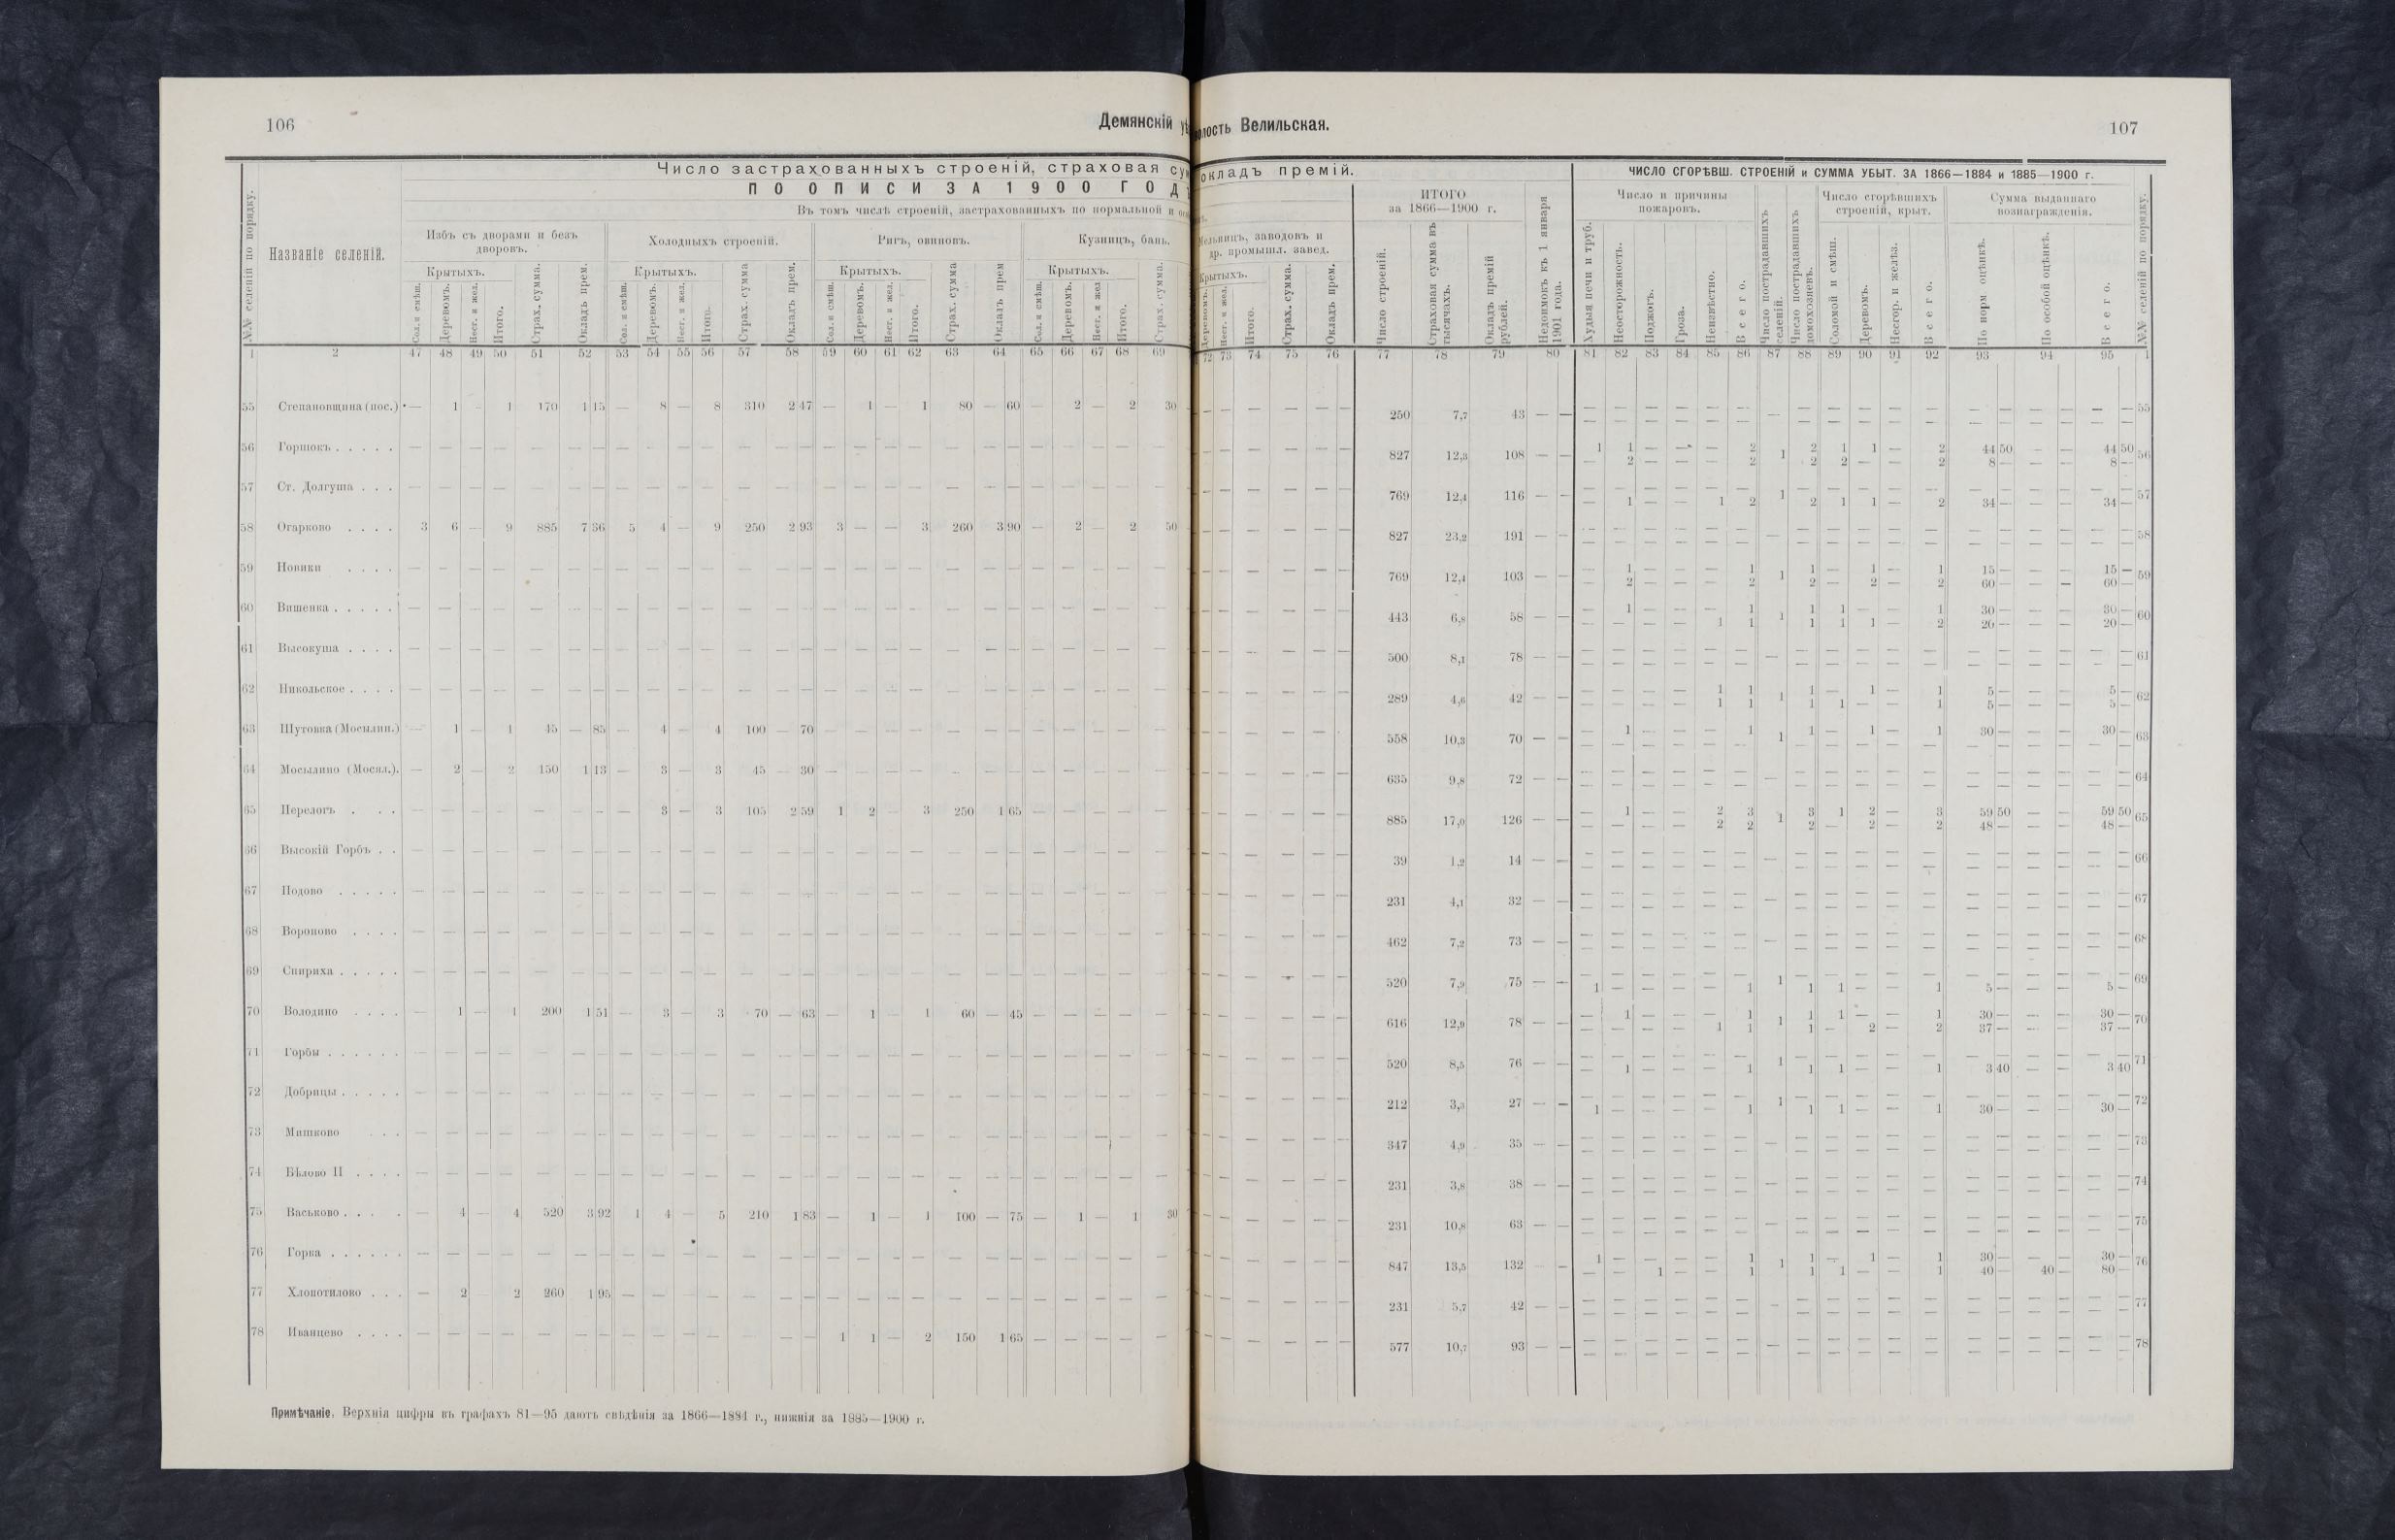 106
Демянскій
Число застрахованныхъ строеній, страховая
ПО ОПИСИ ЗА 1900
Въ томъ числѣ строеній, застрахованныхъ по нормальной и
№№ селеній по порядку.
Названіе селеній.
Избъ съ дворами и безъ дворовъ.
Холодныхъ строеній.
Ригъ, овиновъ.
Кузницъ, бань.
Крытыхъ. Крытыхъ. Крытыхъ. Крытыхъ.
Сол. и смѣш. Деревомъ. Несг. и жел. Итого. Страх. сумма. Окладъ прем.
Сол. и смѣш. Деревомъ. Несг. и жел. Итого. Страх. сумма Окладъ прем.
Сол. и смѣш. Деревомъ. Несг. и жел. Итого. Страх. сумма Окладъ прем
Сол. и смѣш. Деревомъ. Несг. и жел Итого. Страх. сумма.
1 2 47 48 49 50 51 52 53 54 55 56 57 58 59 60 61 62 63 64 65 66 67 68 69
55 Степановщина (пос.) — 1 — 1 170 1 15 — 8 — 8 310 2 47 — 1 — 1 80 — 60 — 2 — 2 30
56 Горшокъ . . . . . — — — — — — — — — — — — — — — — — — — — — — —
57 Ст. Долгуша . . . — — — — — — — — — — — — — — — — — — — — — — —
58 Огарково . . . . 3 6 — 9 885 7 36 5 4 — 9 250 2 93 3 — — 3 260 3 90 — 2 — 2 50
59 Новики . . . . — — — — — — — — — — — — — — — — — — — — — — —
60 Вишенка . . . . . — — — — — — — — — — — — — — — — — — — — — — —
61 Высокуша . . . . — — — — — — — — — — — — — — — — — — — — — — —
62 Никольское . . . . — — — — — — — — — — — — — — — — — — — — — — —
63 Шутовка (Мосылин.) — 1 — 1 45 — 85 — 4 — 4 100 — 70 — — — — — — — — — — —
64 Мосылино (Мосял.). — 2 — 2 150 1 13 — 3 — 3 45 — 30 — — — — — — — — — — —
65 Перелогъ . . . — — — — — — — — 3 — 3 105 2 59 1 2 — 3 250 1 65 — — — — —
66 Высокій Горбъ . . — — — — — — — — — — — — — — — — — — — — — — —
67 Подово . . . . . — — — — — — — — — — — — — — — — — — — — — — —
68 Вороново . . . . — — — — — — — — — — — — — — — — — — — — — — —
69 Спириха . . . . . — — — — — — — — — — — — — — — — — — — — — — —
70 Володино . . . . — 1 — 1 200 1 51 — 3 — 3 70 — 63 — 1 — 1 60 — 45 — — — — —
71 Горбы . . . . . . — — — — — — — — — — — — — — — — — — — — — — —
72 Добрицы . . . . . — — — — — — — — — — — — — — — — — — — — — — —
73 Мишково . . . — — — — — — — — — — — — — — — — — — — — — — —
74 Бѣлово II . . . . — — — — — — — — — — — — — — — — — — — — — — —
75 Васьково . . . . — 4 — 4 520 3 92 1 4 — 5 210 1 83 — 1 — 1 100 — 75 — 1 — 1 30
76 Горка . . . . . . — — — — — — — — — — — — — — — — — — — — — — —
77 Хлопотилово . . . — 2 2 260 1 95 — — — — — — — — — — — — — — — — —
78 Иванцево . . . . — — — — — — — — — — — — — — 1 1 — 2 150 1 65 — — — — —
Примѣчаніе. Верхнія цифры въ графахъ 81—95 даютъ свѣдѣнія за 1866—1884 г., нижнія за 1885—1900 г.
Велильская.
107
окладъ премій.
ЧИСЛО СГОРѢВШ. СТРОЕНІЙ и СУММА УБЫТ. ЗА 1866—1884 и 1885—1900 г.
др. промышл. завед.
Крытыхъ.
Деревомъ. Несг. и жел. Итого. Страх. сумма. Окладъ прем.
ИТОГО
за 1866—1900 г.
Число строеній. Страховая сумма въ тысячахъ. Окладъ премій рублей.
Недоимокъ къ 1 января 1901 года.
Число и причины пожаровъ.
Худыя печи и труб. Неосторожность. Поджогъ. Гроза. Неизвѣстно. Всего.
Число пострадавшихъ селеній.
Число пострадавшихъ домохозяевъ.
Число сгорѣвшихъ строеній, крыт.
Соломой и смѣш. Деревомъ. Несгор. и желѣз. Всего.
Сумма выданнаго вознагражденія.
По норм оцѣнкѣ. По особой оцѣнкѣ. Всего.
№№ селеній по порядку.
72 73 74 75 76 77 78 79 80 81 82 83 84 85 86 87 88 89 90 91 92 93 94 95 1
— — — — — — 250 7,7 43 — — — — — — — — — — — — — — — — — — — — 55
— — — — — — 827 12,3 108 — — 1 1 — — — 2 1 2 1 1 — 2 44 50 — — 44 50 56
— 2 — — — 2 2 2 — — 2 8 — — — 8 —
— — — — — — 769 12,4 116 — — — — — — — — 1 — — — — — — — — — — — 57
— 1 — — 1 2 2 1 1 — 2 34 — — — 34 —
— — — — — — 827 23,2 191 — — — — — — — — — — — — — — — — — — — — 58
— — — — — — 769 12,4 103 — — — 1 — — — 1 1 1 — 1 — 1 15 — — — 15 — 59
— 2 — — — 2 2 — 2 — 2 60 — — — 60 —
— — — — — — 443 6,8 58 — — — 1 — — — 1 1 1 1 — — 1 30 — — — 30 — 60
— — — — 1 1 1 1 1 — 2 20 — — — 20 —
— — — — — — 500 8,1 78 — — — — — — — — — — — — — — — — — — — — 61
— — — — — — 289 4,6 42 — — — — — — 1 1 1 1 — 1 — 1 5 — — — 5 — 62
— — — — 1 1 1 1 — — 1 5 — — — 5 —
— — — — — — 558 10,3 70 — — — 1 — — — 1 1 1 — 1 — 1 30 — — — 30 — 63
— — — — — — 635 9,8 72 — — — — — — — — — — — — — — — — — — — — 64
— — — — — — 885 17,0 126 — — — 1 — — 2 3 1 3 1 2 — 3 59 50 — — 59 50 65
— — — — 2 2 2 — 2 — 2 48 — — — 48 —
— — — — — — 39 1,2 14 — — — — — — — — — — — — — — — — — — — — 66
— — — — — — 231 4,1 32 — — — — — — — — — — — — — — — — — — — — 67
— — — — — — 462 7,2 73 — — — — — — — — — — — — — — — — — — — — 68
— — — — — — 520 7,9 75 — — — — — — — — 1 — — — — — — — — — — — 69
1 — — — — 1 1 1 — — 1 5 — — — 5 —
— — — — — — 616 12,9 78 — — — 1 — — — 1 1 1 1 — — 1 30 — — — 30 — 70
— — — — 1 1 1 — 2 — 2 37 — — — 37 —
— — — — — — 520 8,5 76 — — — — — — — — 1 — — — — — — — — — — — 71
— 1 — — — 1 1 1 — — 1 3 40 — — 3 40
— — — — — — 212 3,3 27 — — — — — — — — 1 — — — — — — — — — — — 72
1 — — — — 1 1 1 — — 1 30 — — — 30 —
— — — — — — 347 4,9 35 — — — — — — — — — — — — — — — — — — — — 73
— — — — — — 231 3,8 38 — — — — — — — — — — — — — — — — — — — — 74
— — — — — — 231 10,8 63 — — — — — — — — — — — — — — — — — — — — 75
— — — — — — 847 13,5 132 — — 1 — — — — 1 1 1 — 1 — 1 30 — — — 30 — 76
— — 1 — — 1 1 1 — — 1 40 — 40 — 80 —
— — — — — — 231 5,7 42 — — — — — — — — — — — — — — — — — — — — 77
— — — — — — 577 10,7 93 — — — — — — — — — — — — — — — — — — — — 78